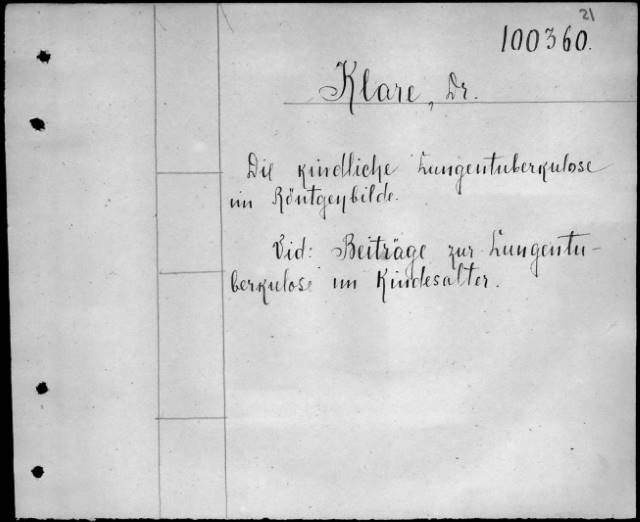 21
100360.
Klare, Dr.
Die kindliche Lungentuberkulose
im Röntgenbilde.
Vid: Beiträge zur Lungentu-
berkulose im Kindesalter.